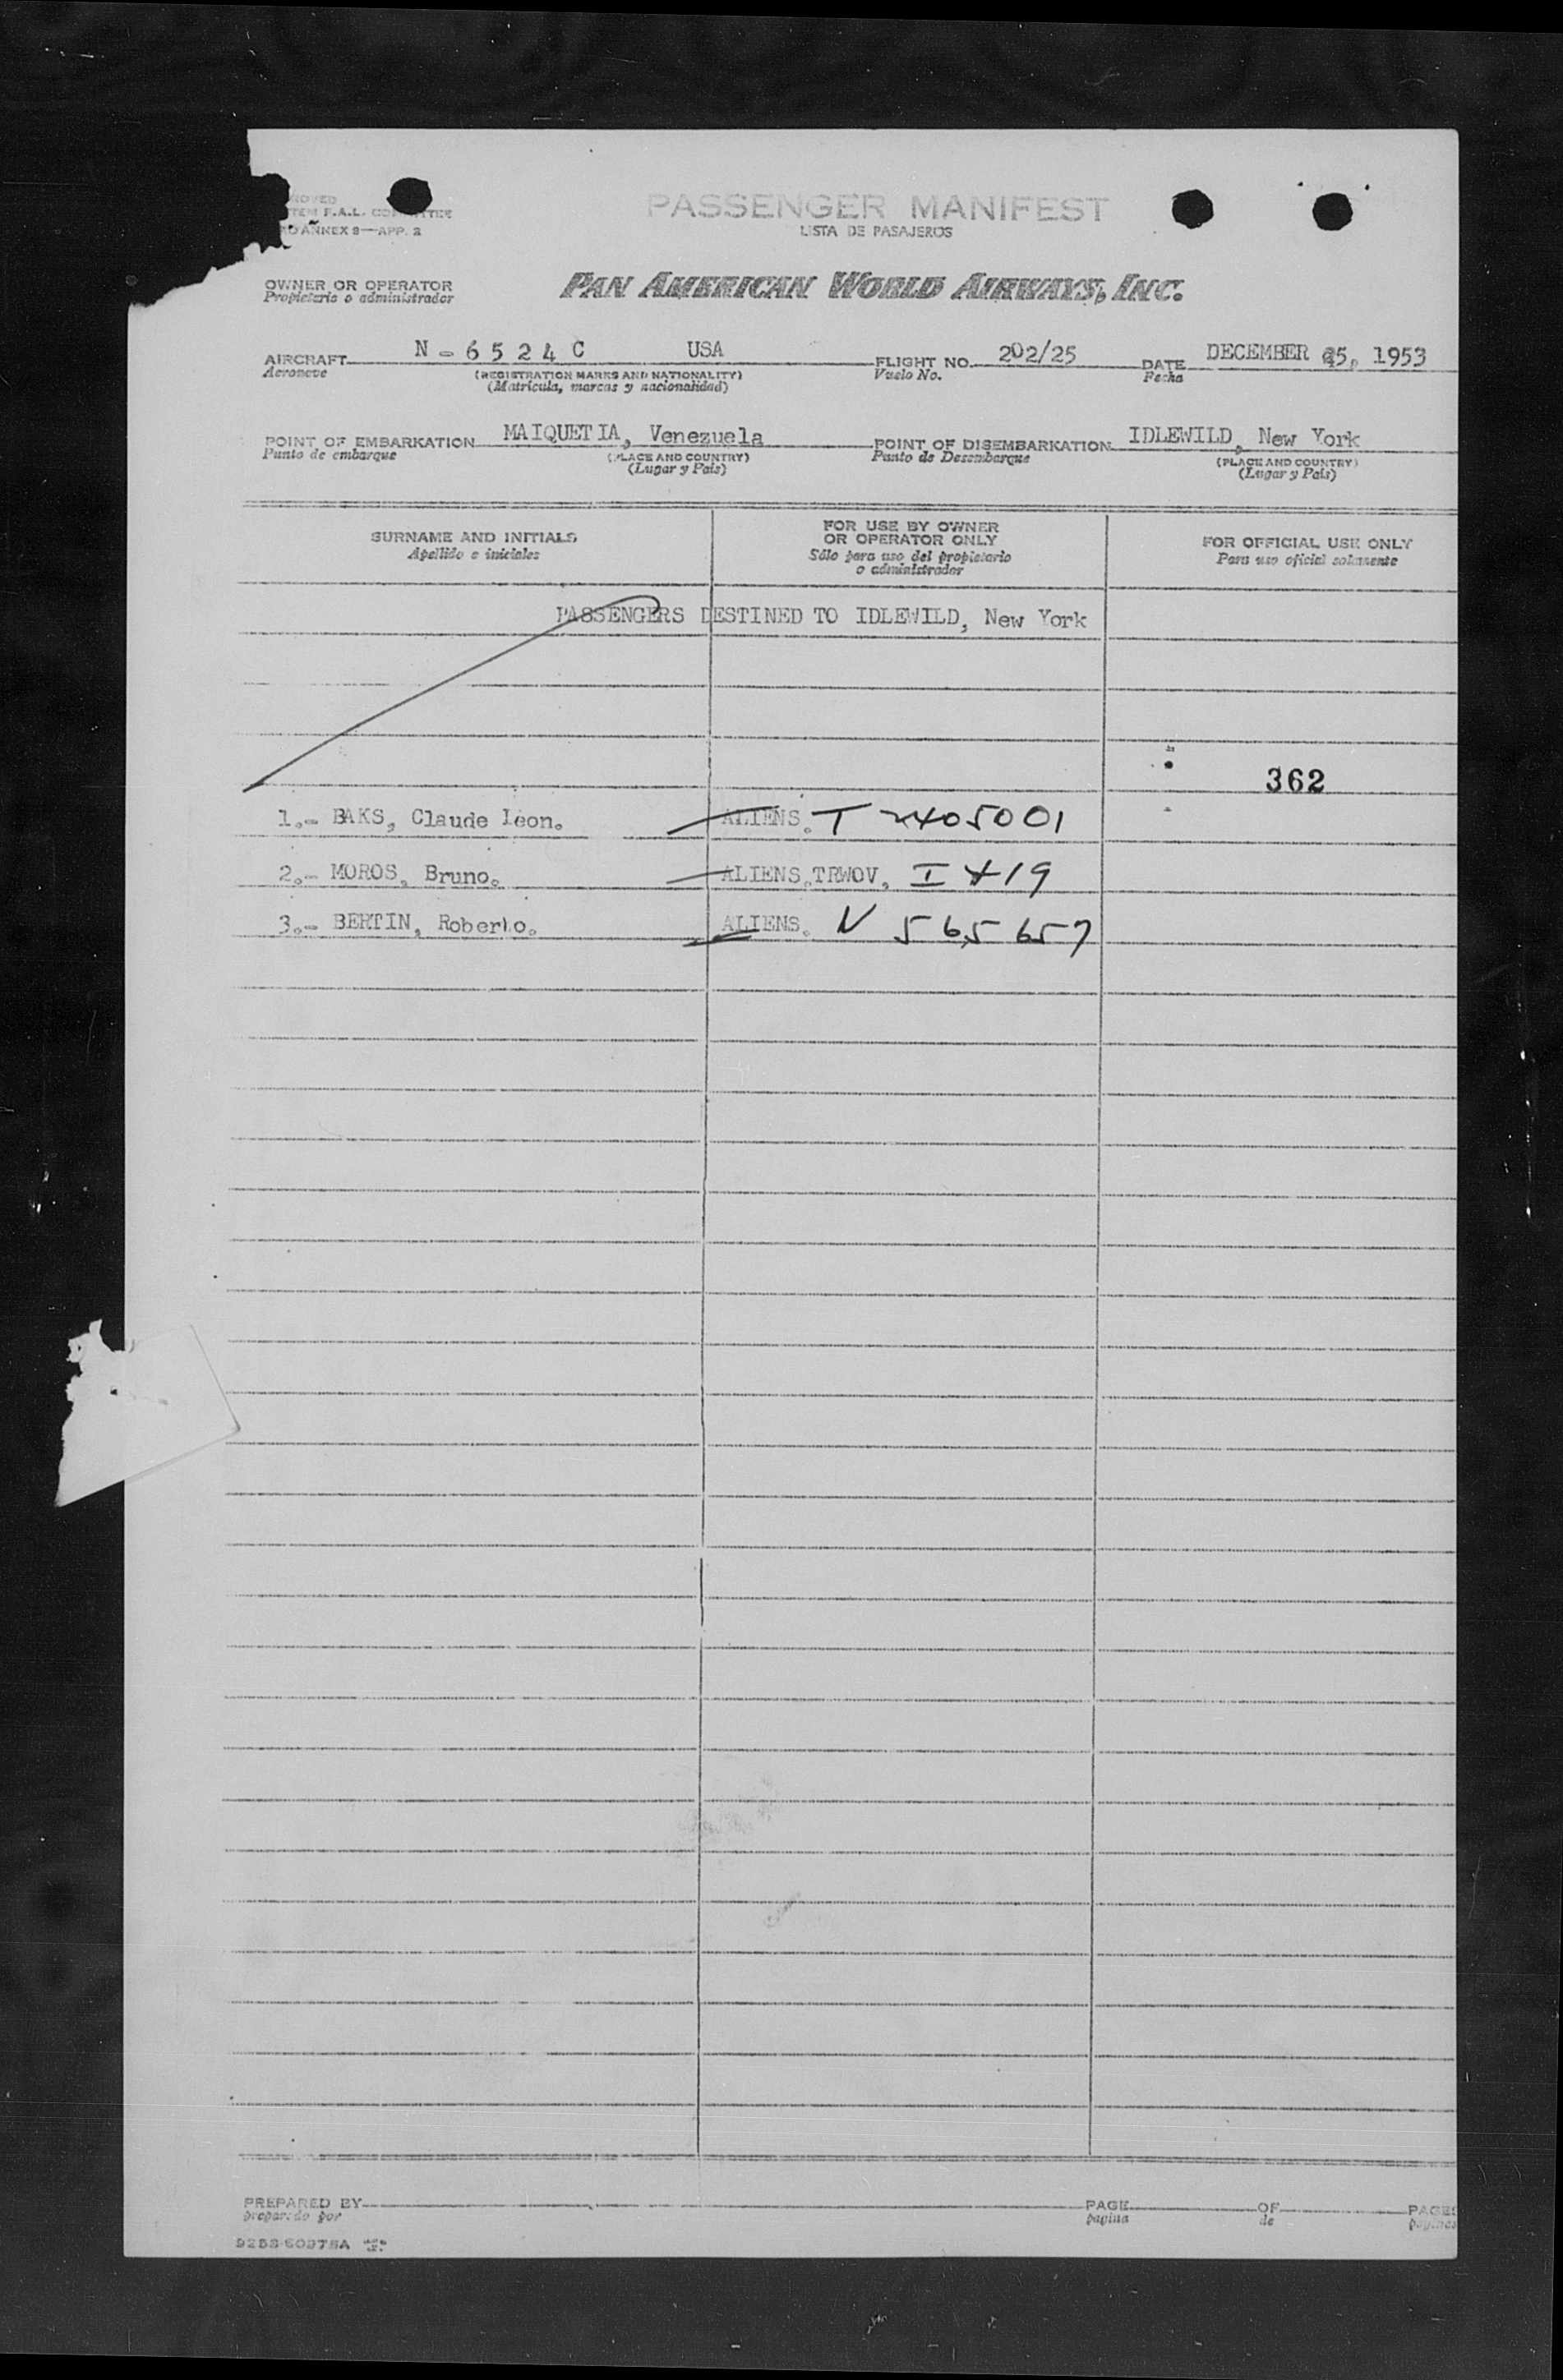 PASSENGER MANIFEST
LISTA DE PASAJEROS
ANNEX 9—APP. 2
OWNER OR OPERATOR
Propietario o administrador
PAN AMERICAN WORLD AIRWAYS, INC.
AIRCRAFT N-6524C USA FLIGHT NO. 202/25 DATE DECEMBER 25, 1953
Aeronave (REGISTRATION MARKS AND NATIONALITY) Vuelo No. Fecha
(Matrícula, marcas y nacionalidad)
POINT OF EMBARKATION MAIQUETIA, Venezuela POINT OF DISEMBARKATION IDLEWILD, New York
Punto de embarque (PLACE AND COUNTRY) Punto de Desembarque (PLACE AND COUNTRY)
(Lugar y País) (Lugar y País)
SURNAME AND INITIALS
Apellido e iniciales
FOR USE BY OWNER
OR OPERATOR ONLY
Sólo para uso del propietario
o administrador
FOR OFFICIAL USE ONLY
Para uso oficial solamente
PASSENGERS DESTINED TO IDLEWILD, New York
362
1.- BAKS, Claude Leon. ALIENS. T 2405001
2.- MOROS, Bruno. ALIENS.TRWOV. I 419
3.- BERTIN, Roberto. ALIENS. V 565657
PREPARED BY PAGE OF PAGES
preparado por página de páginas